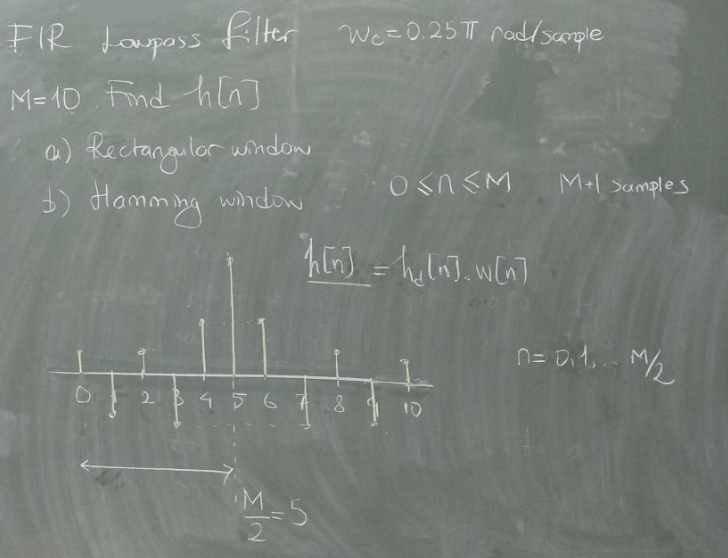 FIR Lowpass filter Wc=0.25π rad/sample
M=10. Find h[n]
a) Rectangular window
b) Hamming window 0≤n≤M M+1 samples
h[n] = hd[n].w[n]
n= 0,1,... M/2
0 1 2 3 4 5 6 7 8 9 10
M/2=5